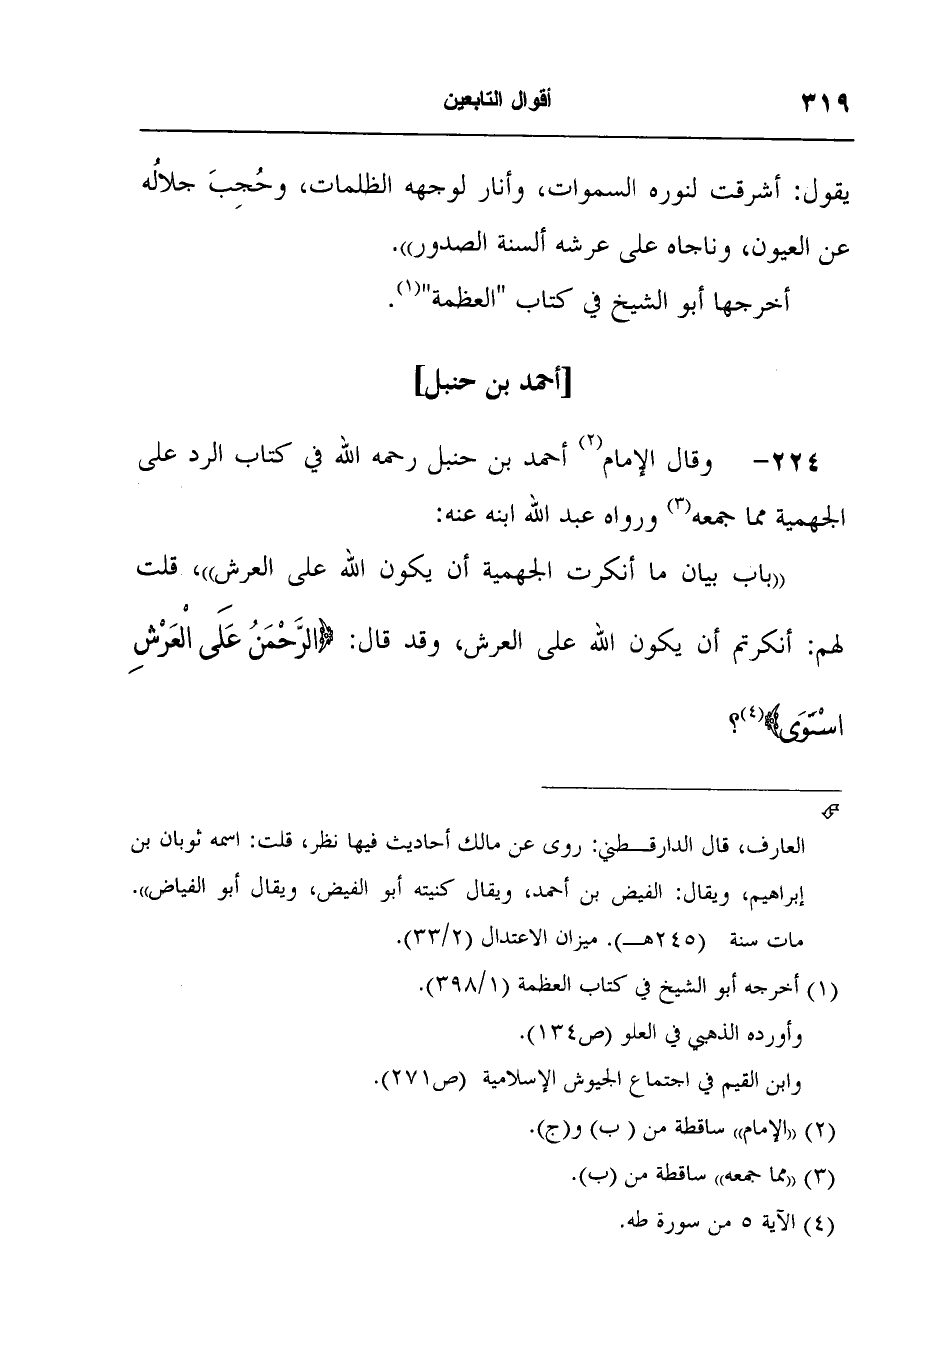 ٣١٩ أقوال التابعين
يقول: أشرقت لنوره السموات، وأنار لوجهه الظلمات، وحُجِبَ جلالُه
عن العيون، وناجاه على عرشه ألسنة الصدور)).
أخرجها أبو الشيخ في كتاب "العظمة"(١).
[أحمد بن حنبل]
٢٢٤- وقال الإمام(٢) أحمد بن حنبل رحمه الله في كتاب الرد على
الجهمية مما جمعه(٣) ورواه عبد الله ابنه عنه:
((باب بيان ما أنكرت الجهمية أن يكون الله على العرش))، قلت
لهم: أنكرتم أن يكون الله على العرش، وقد قال: ﴿الرَّحْمَنُ عَلَى الْعَرْشِ
اسْتَوَى﴾(٤)؟
العارف، قال الدارقـــطني: روى عن مالك أحاديث فيها نظر، قلت: اسمه ثوبان بن
إبراهيم، ويقال: الفيض بن أحمد، ويقال كنيته أبو الفيض، ويقال أبو الفياض)).
مات سنة (٢٤٥هـــ). ميزان الاعتدال (٣٣/٢).
(١) أخرجه أبو الشيخ في كتاب العظمة (٣٩٨/١).
وأورده الذهبي في العلو (ص١٣٤).
وابن القيم في اجتماع الجيوش الإسلامية (ص٢٧١).
(٢) ((الإمام)) ساقطة من ( ب) و(ج).
(٣) ((مما جمعه)) ساقطة من (ب).
(٤) الآية ٥ من سورة طه.